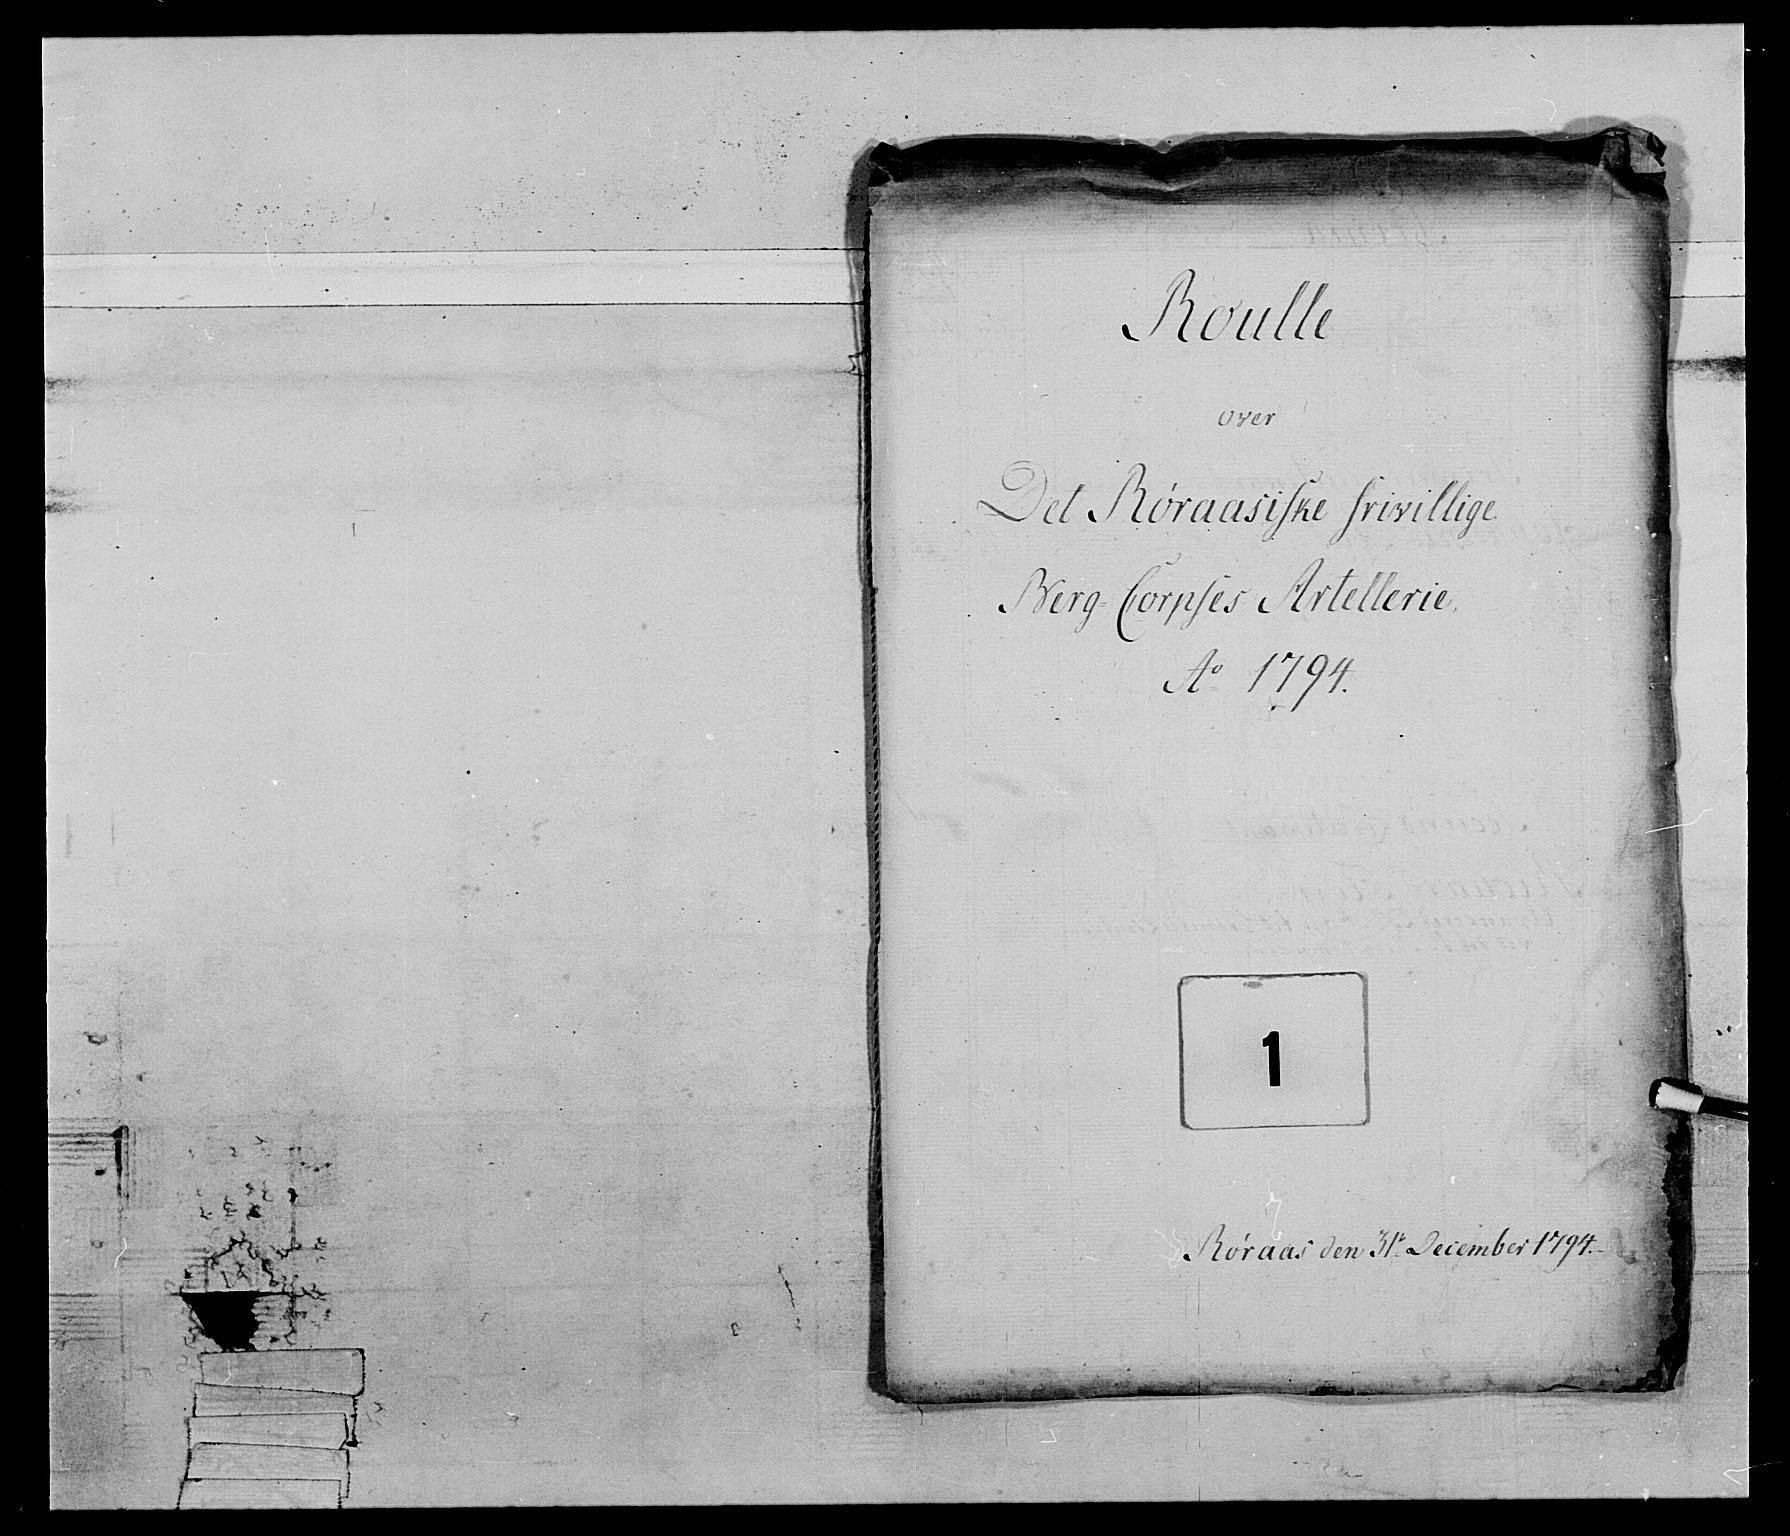 Roulle
over
Det Røraasiske frivillige
Berg-Corpses Artellerie,
Ao 1794.
1
Røraas den 31te December 1794.